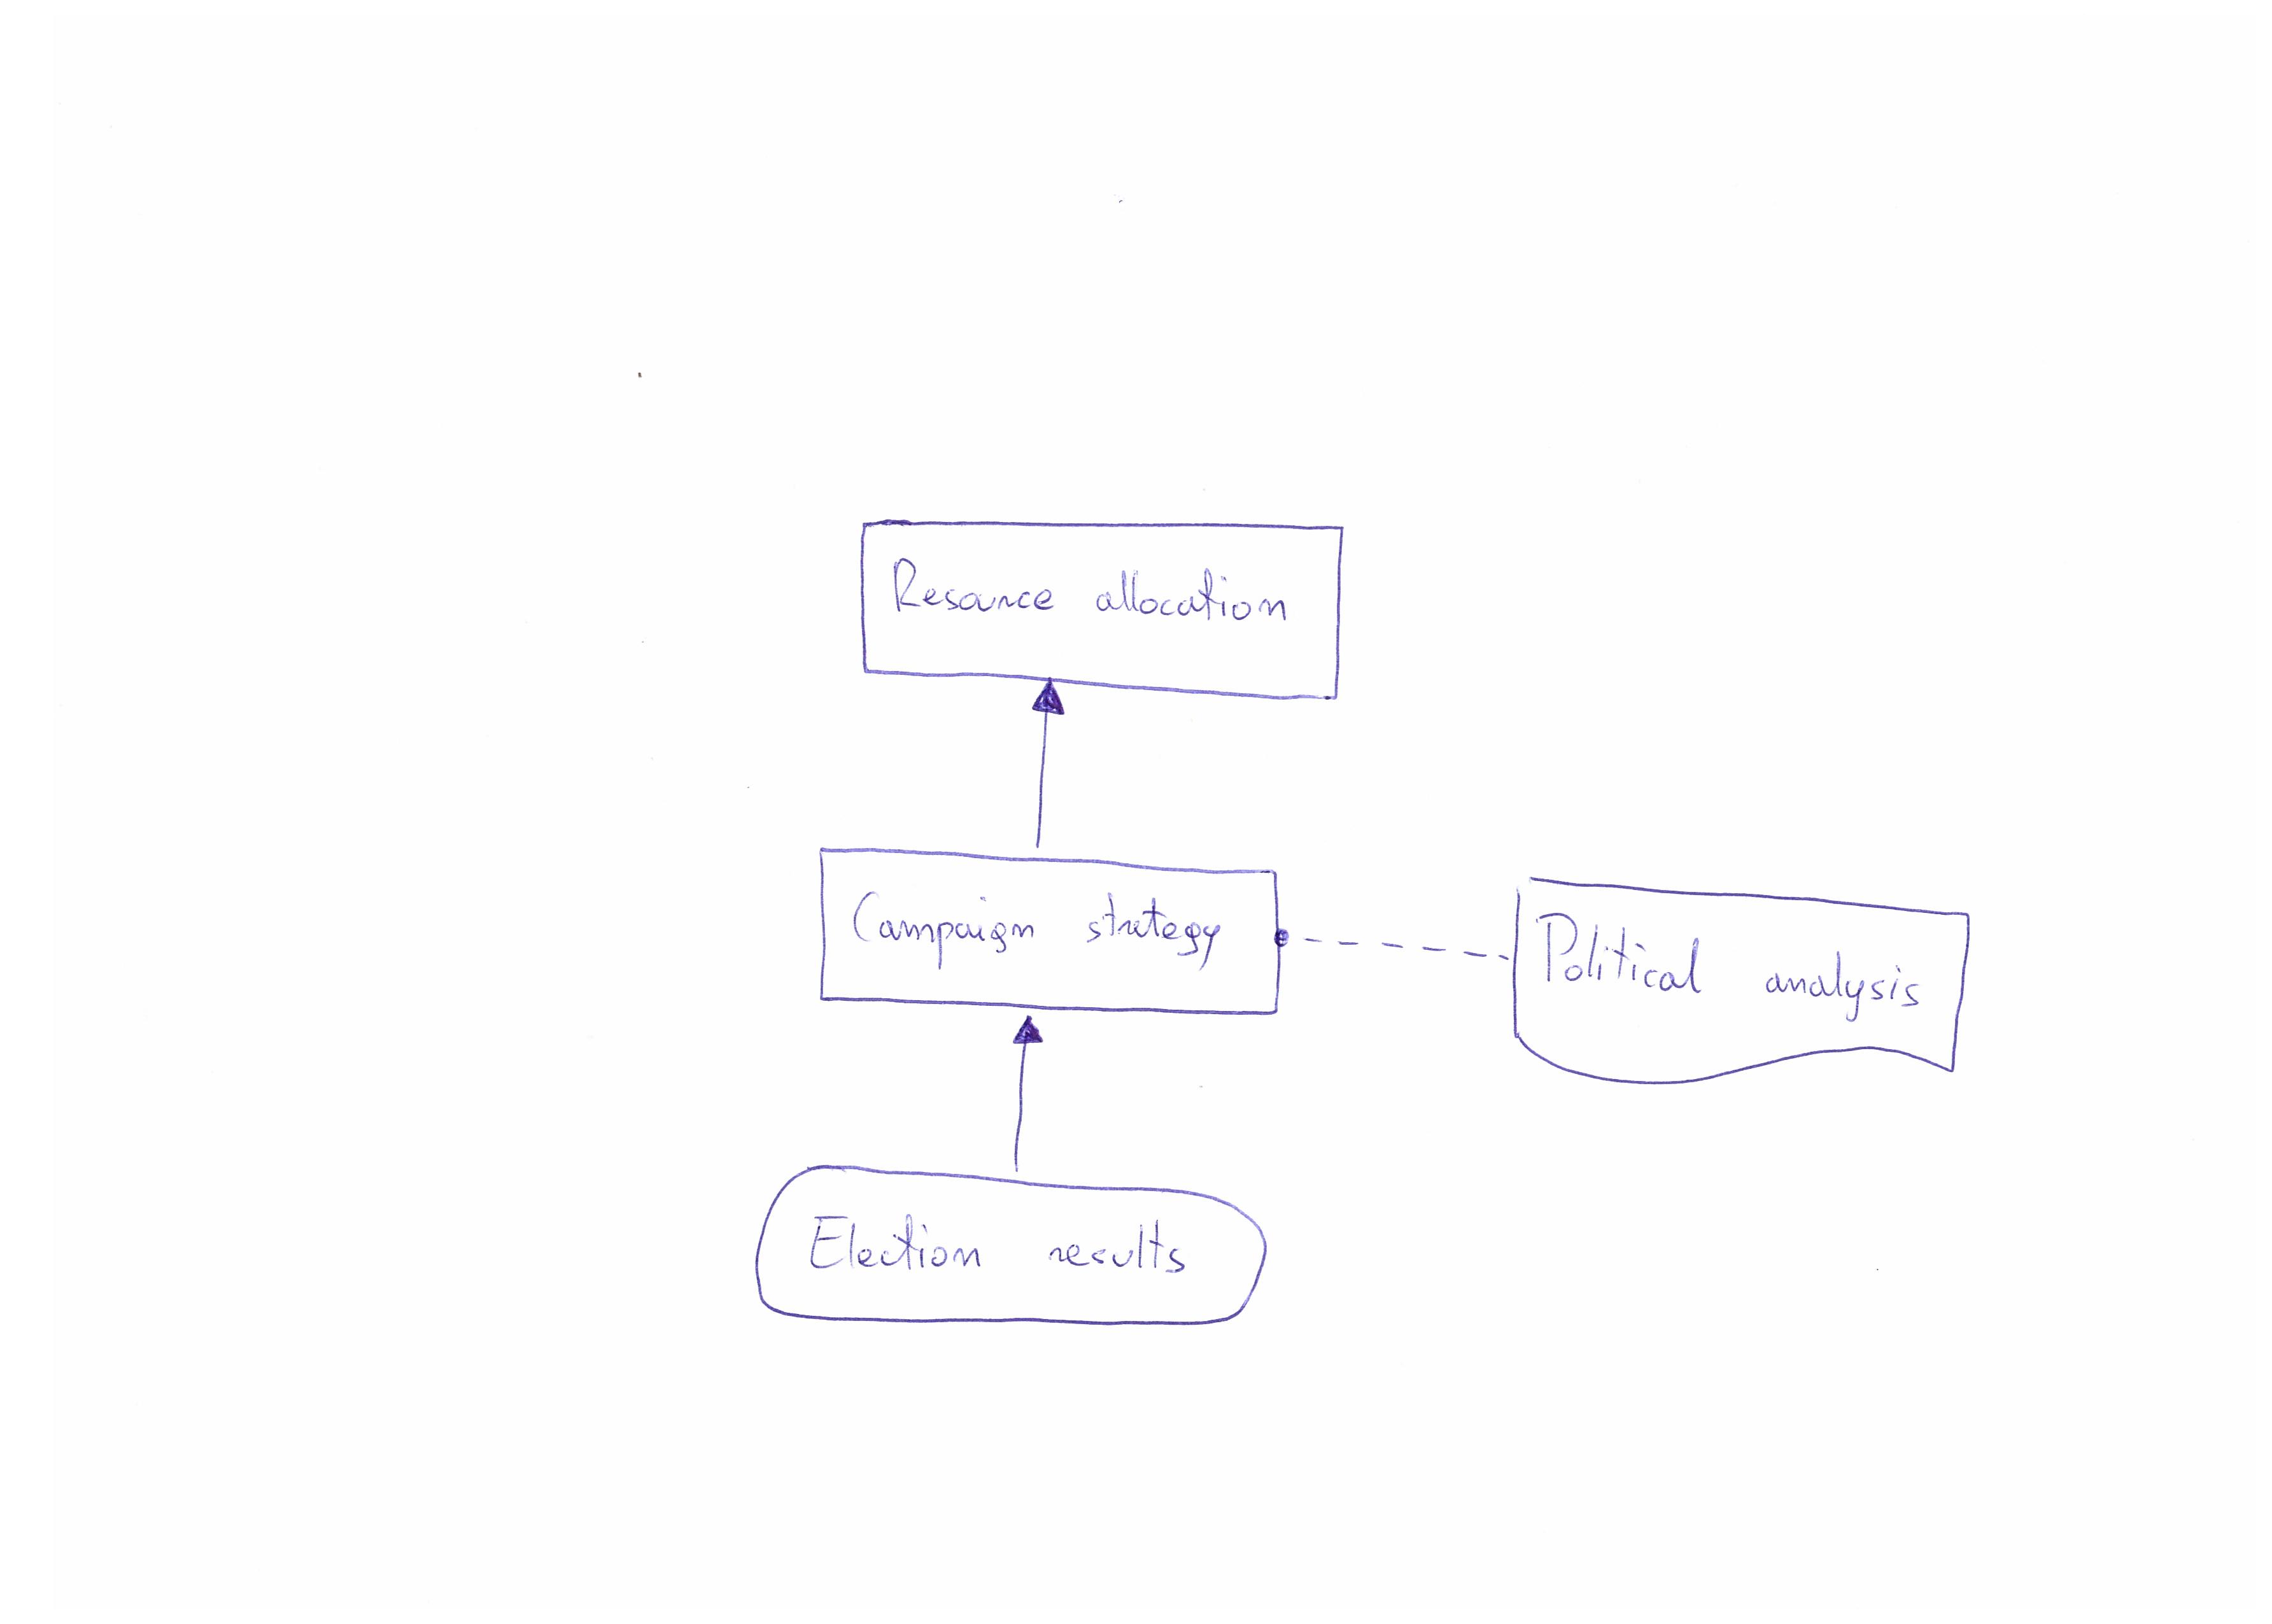 Resource allocation
Campaign strategy
Political analysis
Election results